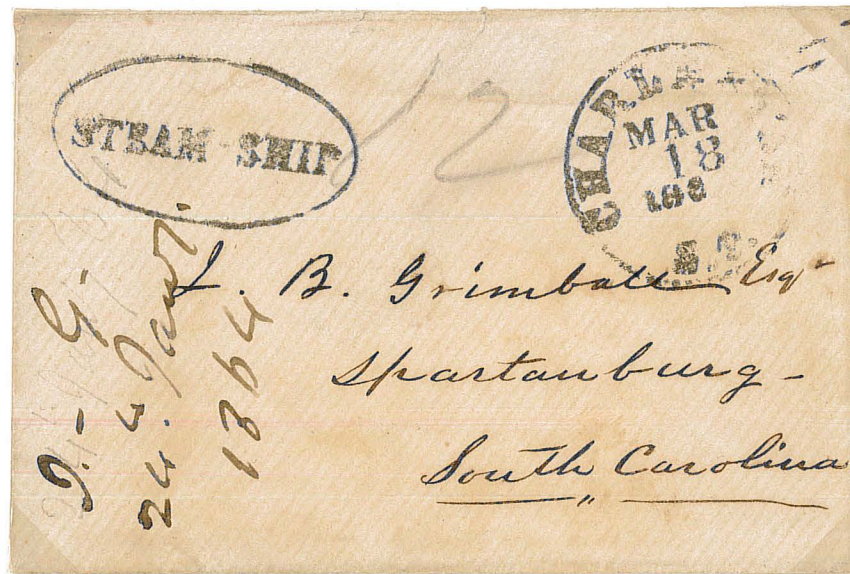 STEAM-SHIP
12
CHARLESTON
MAR
18
186
S.C.
J. B. Grimball Esqr
Spartanburg -
South Carolina
24 Jany.
1864